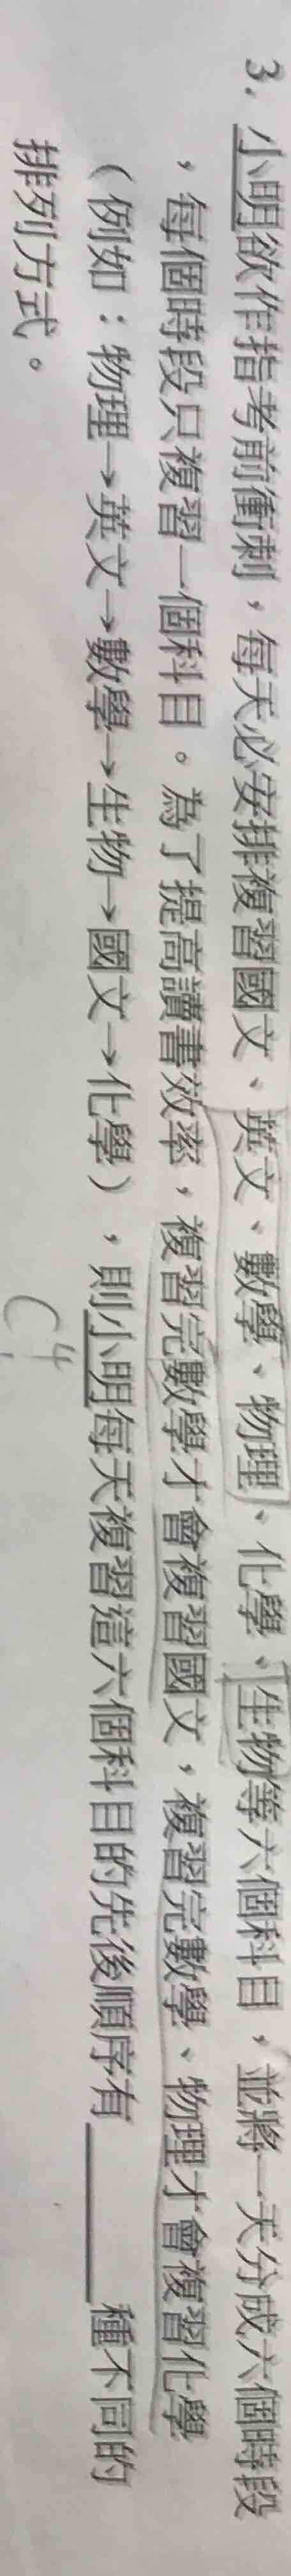 3. 小明欲作指考前衝刺，每天必安排複習國文、英文、數學、物理、化學、生物等六個科目，並將一天分成六個時段
，每個時段只複習一個科目。為了提高讀書效率，複習完數學才會複習國文，複習完數學、物理才會複習化學
（例如：物理→英文→數學→生物→國文→化學），則小明每天複習這六個科目的先後順序有______種不同的
排列方式。
C4